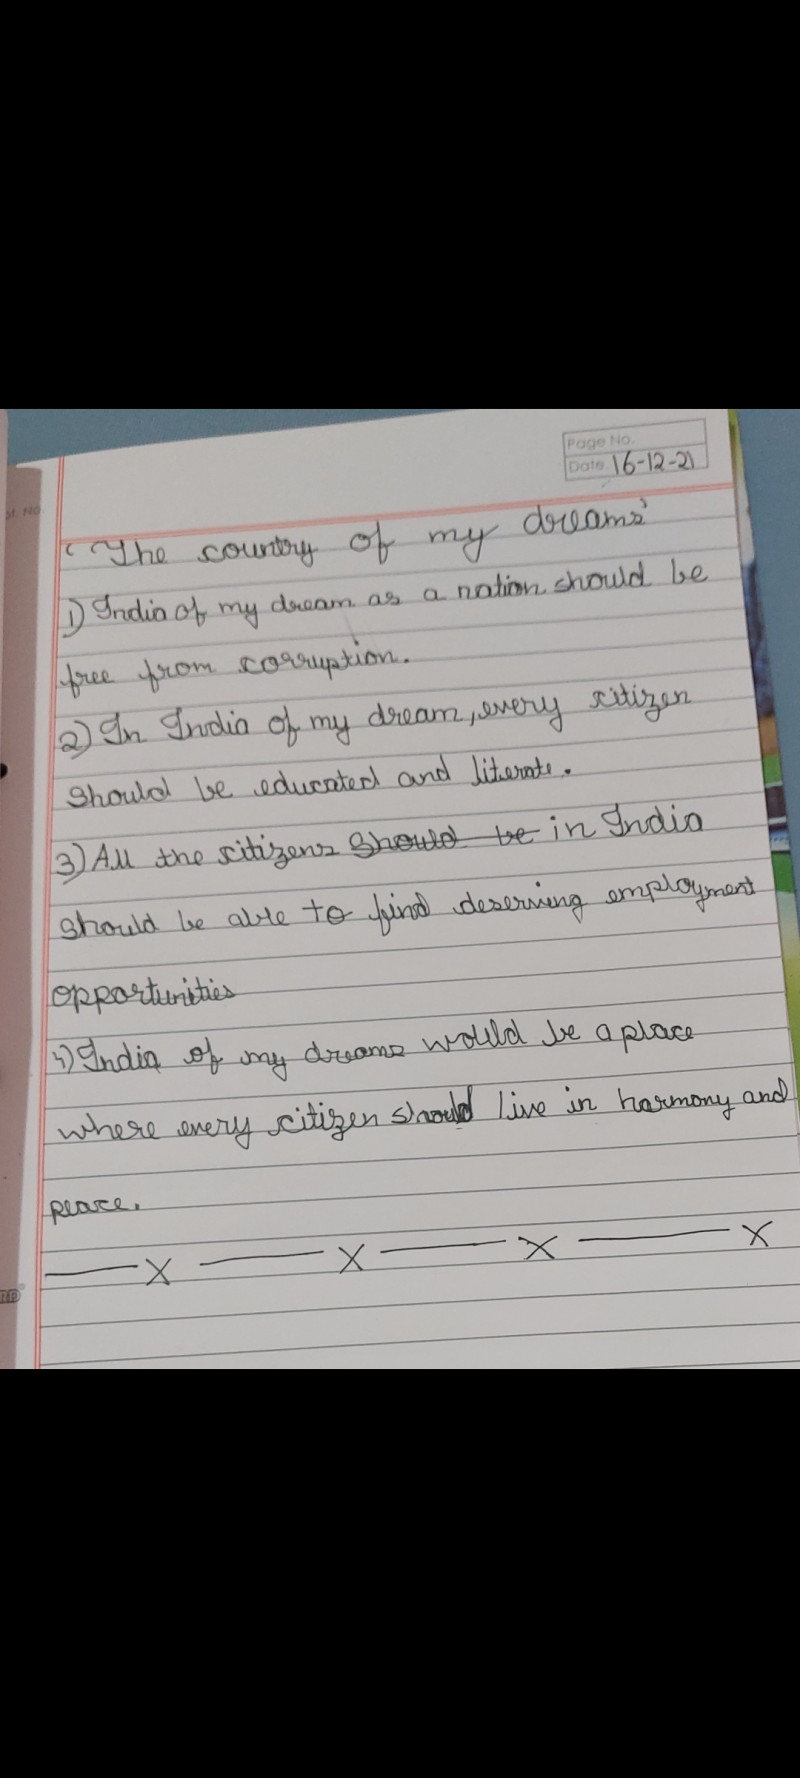 Page No.
Date. 16-12-21
'The country of my dreams'
1) India of my dream as a nation should be
free from corruption.
2) In India of my dream, every citizen
should be educated and literate.
3) All the citizens should be in India
should be able to find deserving employment
opportunities
4) India of my dreams would be a place
where every citizen should live in harmony and
peace.
— X — X — X — X